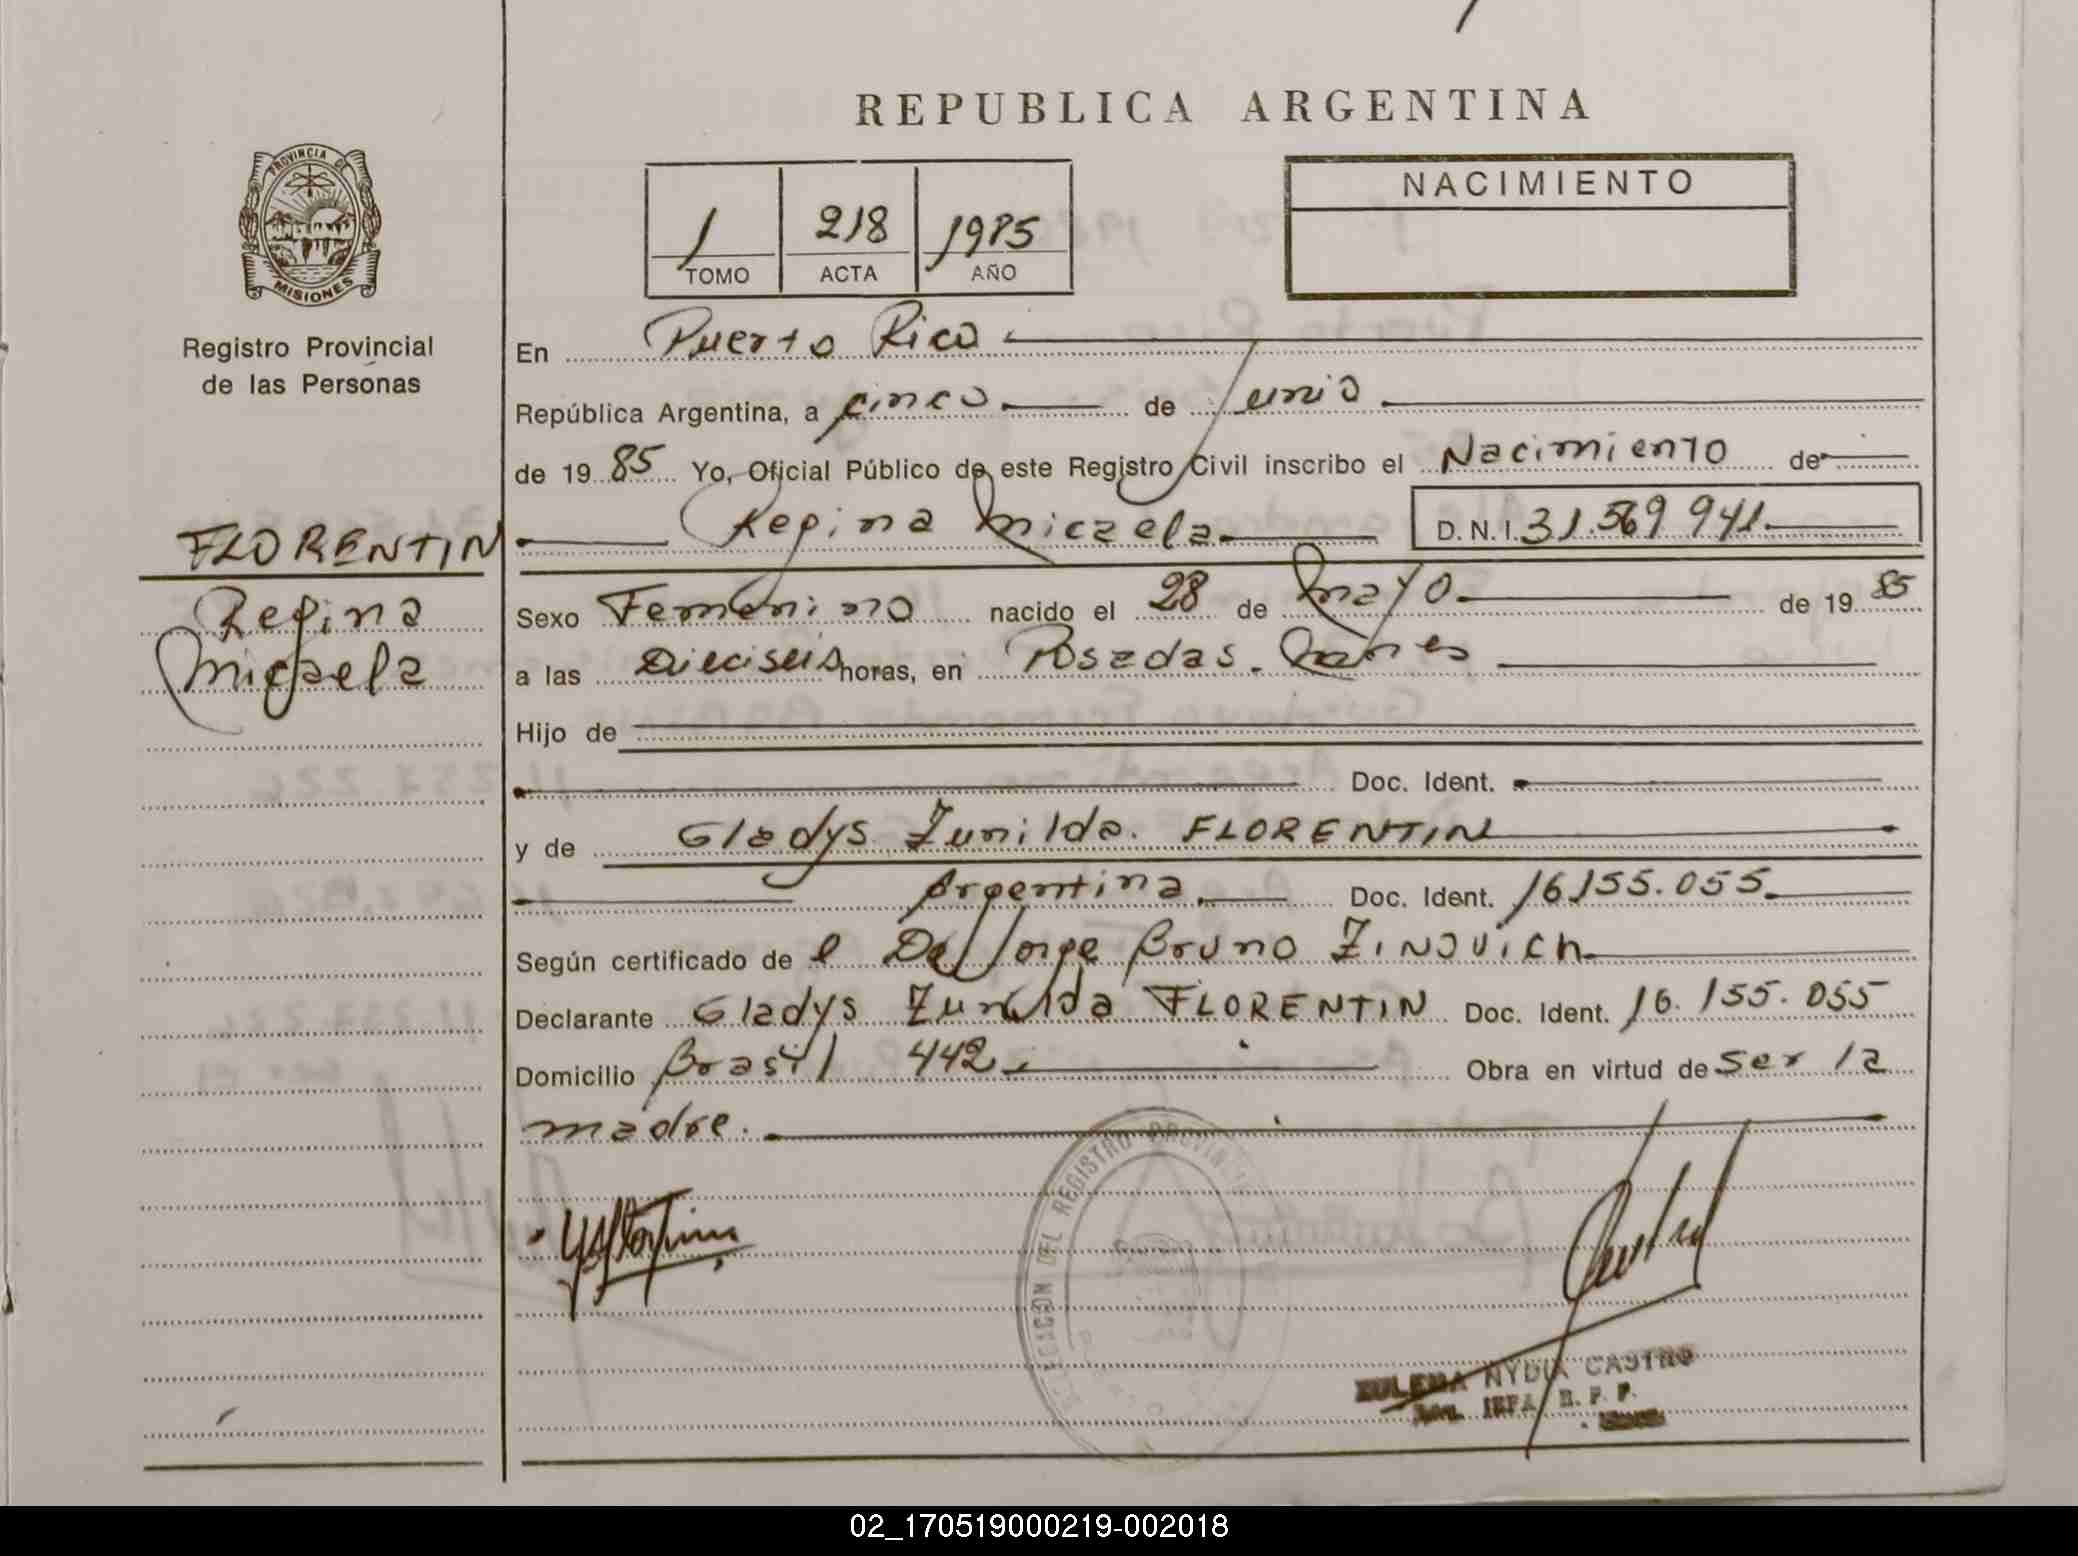 REPUBLICA ARGENTINA
PROVINCIA DE
MISIONES
Registro Provincial
de las Personas
1 218 1985
TOMO ACTA AÑO
NACIMIENTO
En Puerto Rico
República Argentina, a cinco de Junio
de 19 85 Yo, Oficial Público de este Registro Civil inscribo el Nacimiento de
FLORENTIN
Regina
Micaela
Regina Micaela D.N.I. 31.569 941
Sexo Femenino nacido el 28 de mayo de 19 85
a las Dieciseis horas, en Posadas.
Hijo de
Doc. Ident.
y de Gladys Zunilda. FLORENTIN
Argentina. Doc. Ident. 16155.055
Según certificado de l Jorge Bruno ZINOVICH
Declarante Gladys Zunilda FLORENTIN Doc. Ident. 16.155.055
Domicilio Brasil 442 Obra en virtud de ser la
madre.
DEL REGISTRO PROVINCIAL
ZULEMA NYDIA CASTRO
02_170519000219-002018